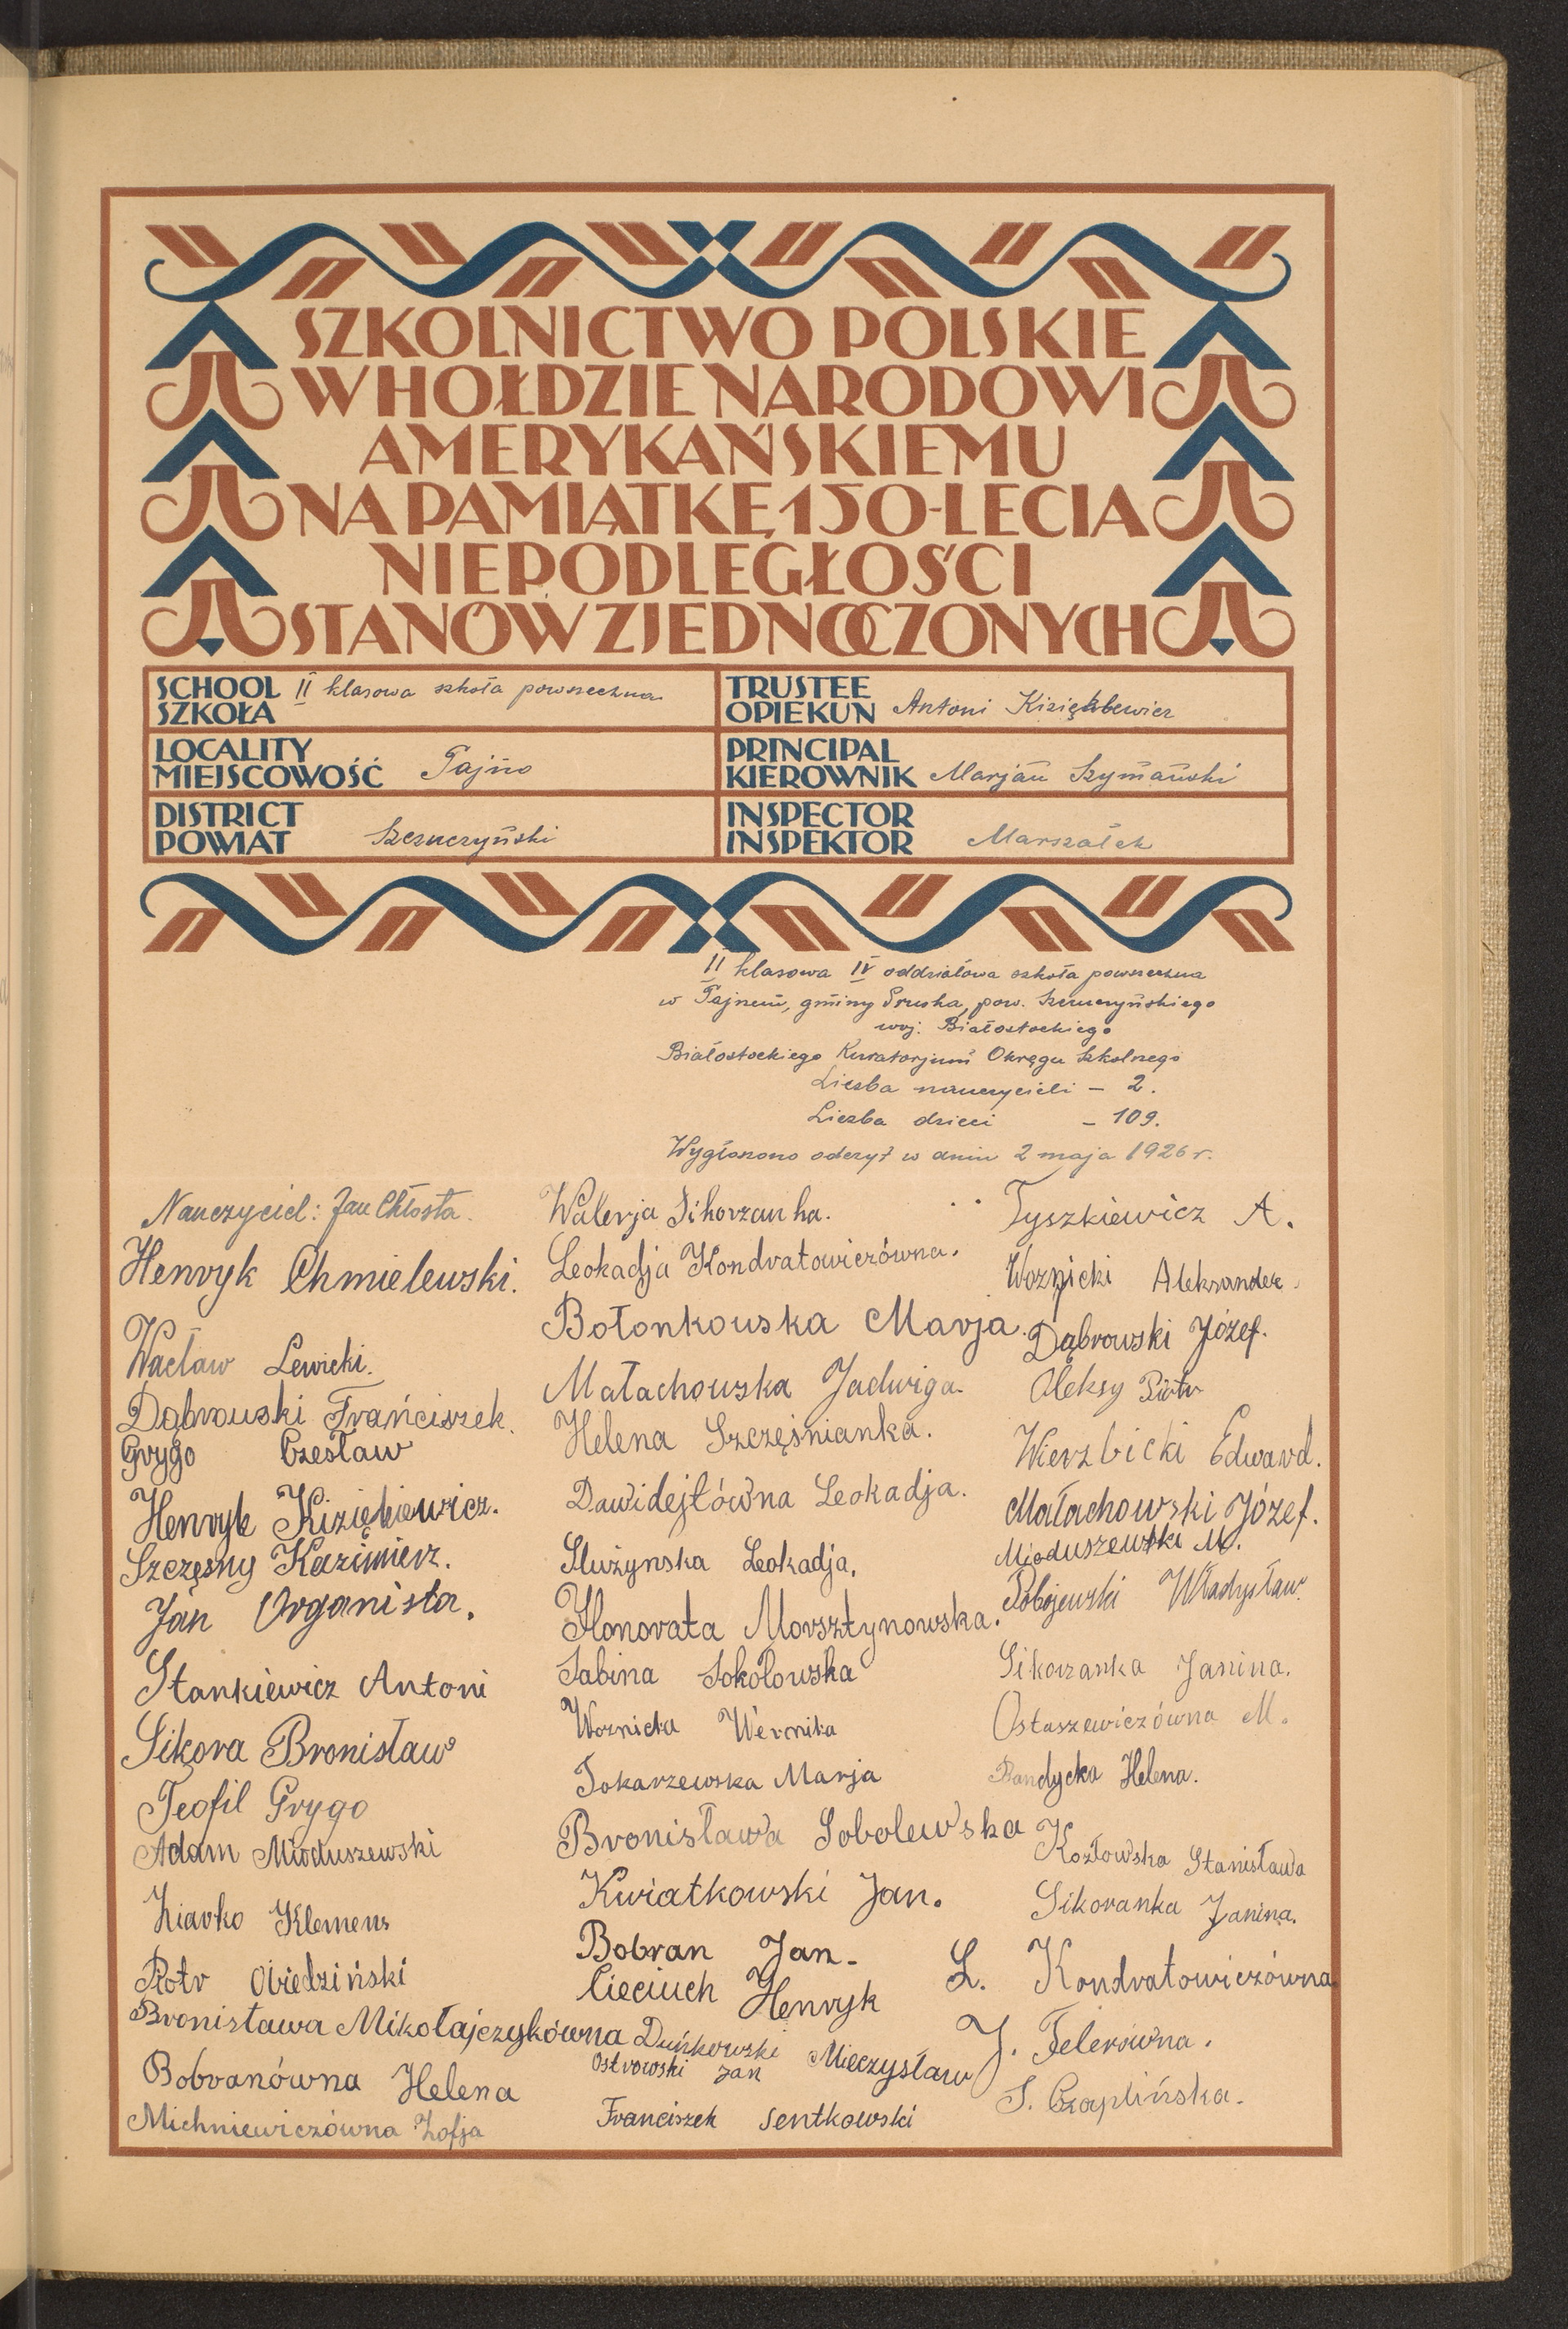 SZKOLNICTWO POLSKIE
W HOŁDZIE NARODOWI
AMERYKAŃSKIEMU
NA PAMIĄTKĘ 150-LECIA
NIEPODLEGŁOŚCI
STANÓW ZJEDNOCZONYCH
SCHOOL
SZKOŁA
II klasowa szkoła powszechna
TRUSTEE
OPIEKUN
Antoni
LOCALITY
MIEJSCOWOŚĆ
Tajno
PRINCIPAL
KIEROWNIK
Marjan Szymański
DISTRICT
POWIAT
Szczuczyński
INSPECTOR
INSPEKTOR
Marszałek
II klasowa IV oddziałowa szkoła powszechna
w Tajnem, gminy Pruska, pow. Szczuczyńskiego
woj. Białostockiego
Białostockiego Kuratorjum Okręgu Szkolnego
Liczba nauczycieli – 2.
Liczba dzieci – 109.
Wygłoszono odczyt w dniu 2 maja 1926 r.
Nauczyciel: Jan Chłosta.
Henryk Chmielewski.
Wacław Lewicki.
Dąbrowski Frańciszek.
Grygo Czesław
Henryk Kiziękiewicz.
Szczęsny Kazimierz.
Jan Organista.
Stankiewicz Antoni
Sikora Bronisław
Teofil Grygo
Adam Mioduszewski
Ziarko Klemens
Piotr Obiedziński
Bronisława Mikołajczykówna
Bobranówna Helena
Michniewiczówna Zofja
Walerja Sikorzanka.
Leokadja Kondratowiczówna.
Bołonkowska Marja.
Małachowska Jadwiga.
Helena Szczęśnianka.
Dawidejtówna Leokadja.
Służynska Leokadja,
Honorata Morsztynowska.
Sabina Sokołowska
Woznicka Wernika
Tokarzewska Marja
Bronisława Sobolewska
Kwiatkowski Jan.
Bobran Jan.
Cieciuch Henryk
Duńkowski Mieczysław
Ostrowski Jan
Franciszek Sentkowski
Tyszkiewicz A.
Woznicki Aleksander.
Dąbrowski Józef.
Oleksy Piotr
Wierzbicki Edward.
Małachowski Józef.
Mioduszewski M.
Pobojewski Władysław.
Sikorzanka Janina.
Ostaszewiczówna M.
Bandycka Helena.
Kozłowska Stanisława
Sikoranka Janina.
L. Kondratowiczówna
J. Felerówna.
S. Czaplińska.